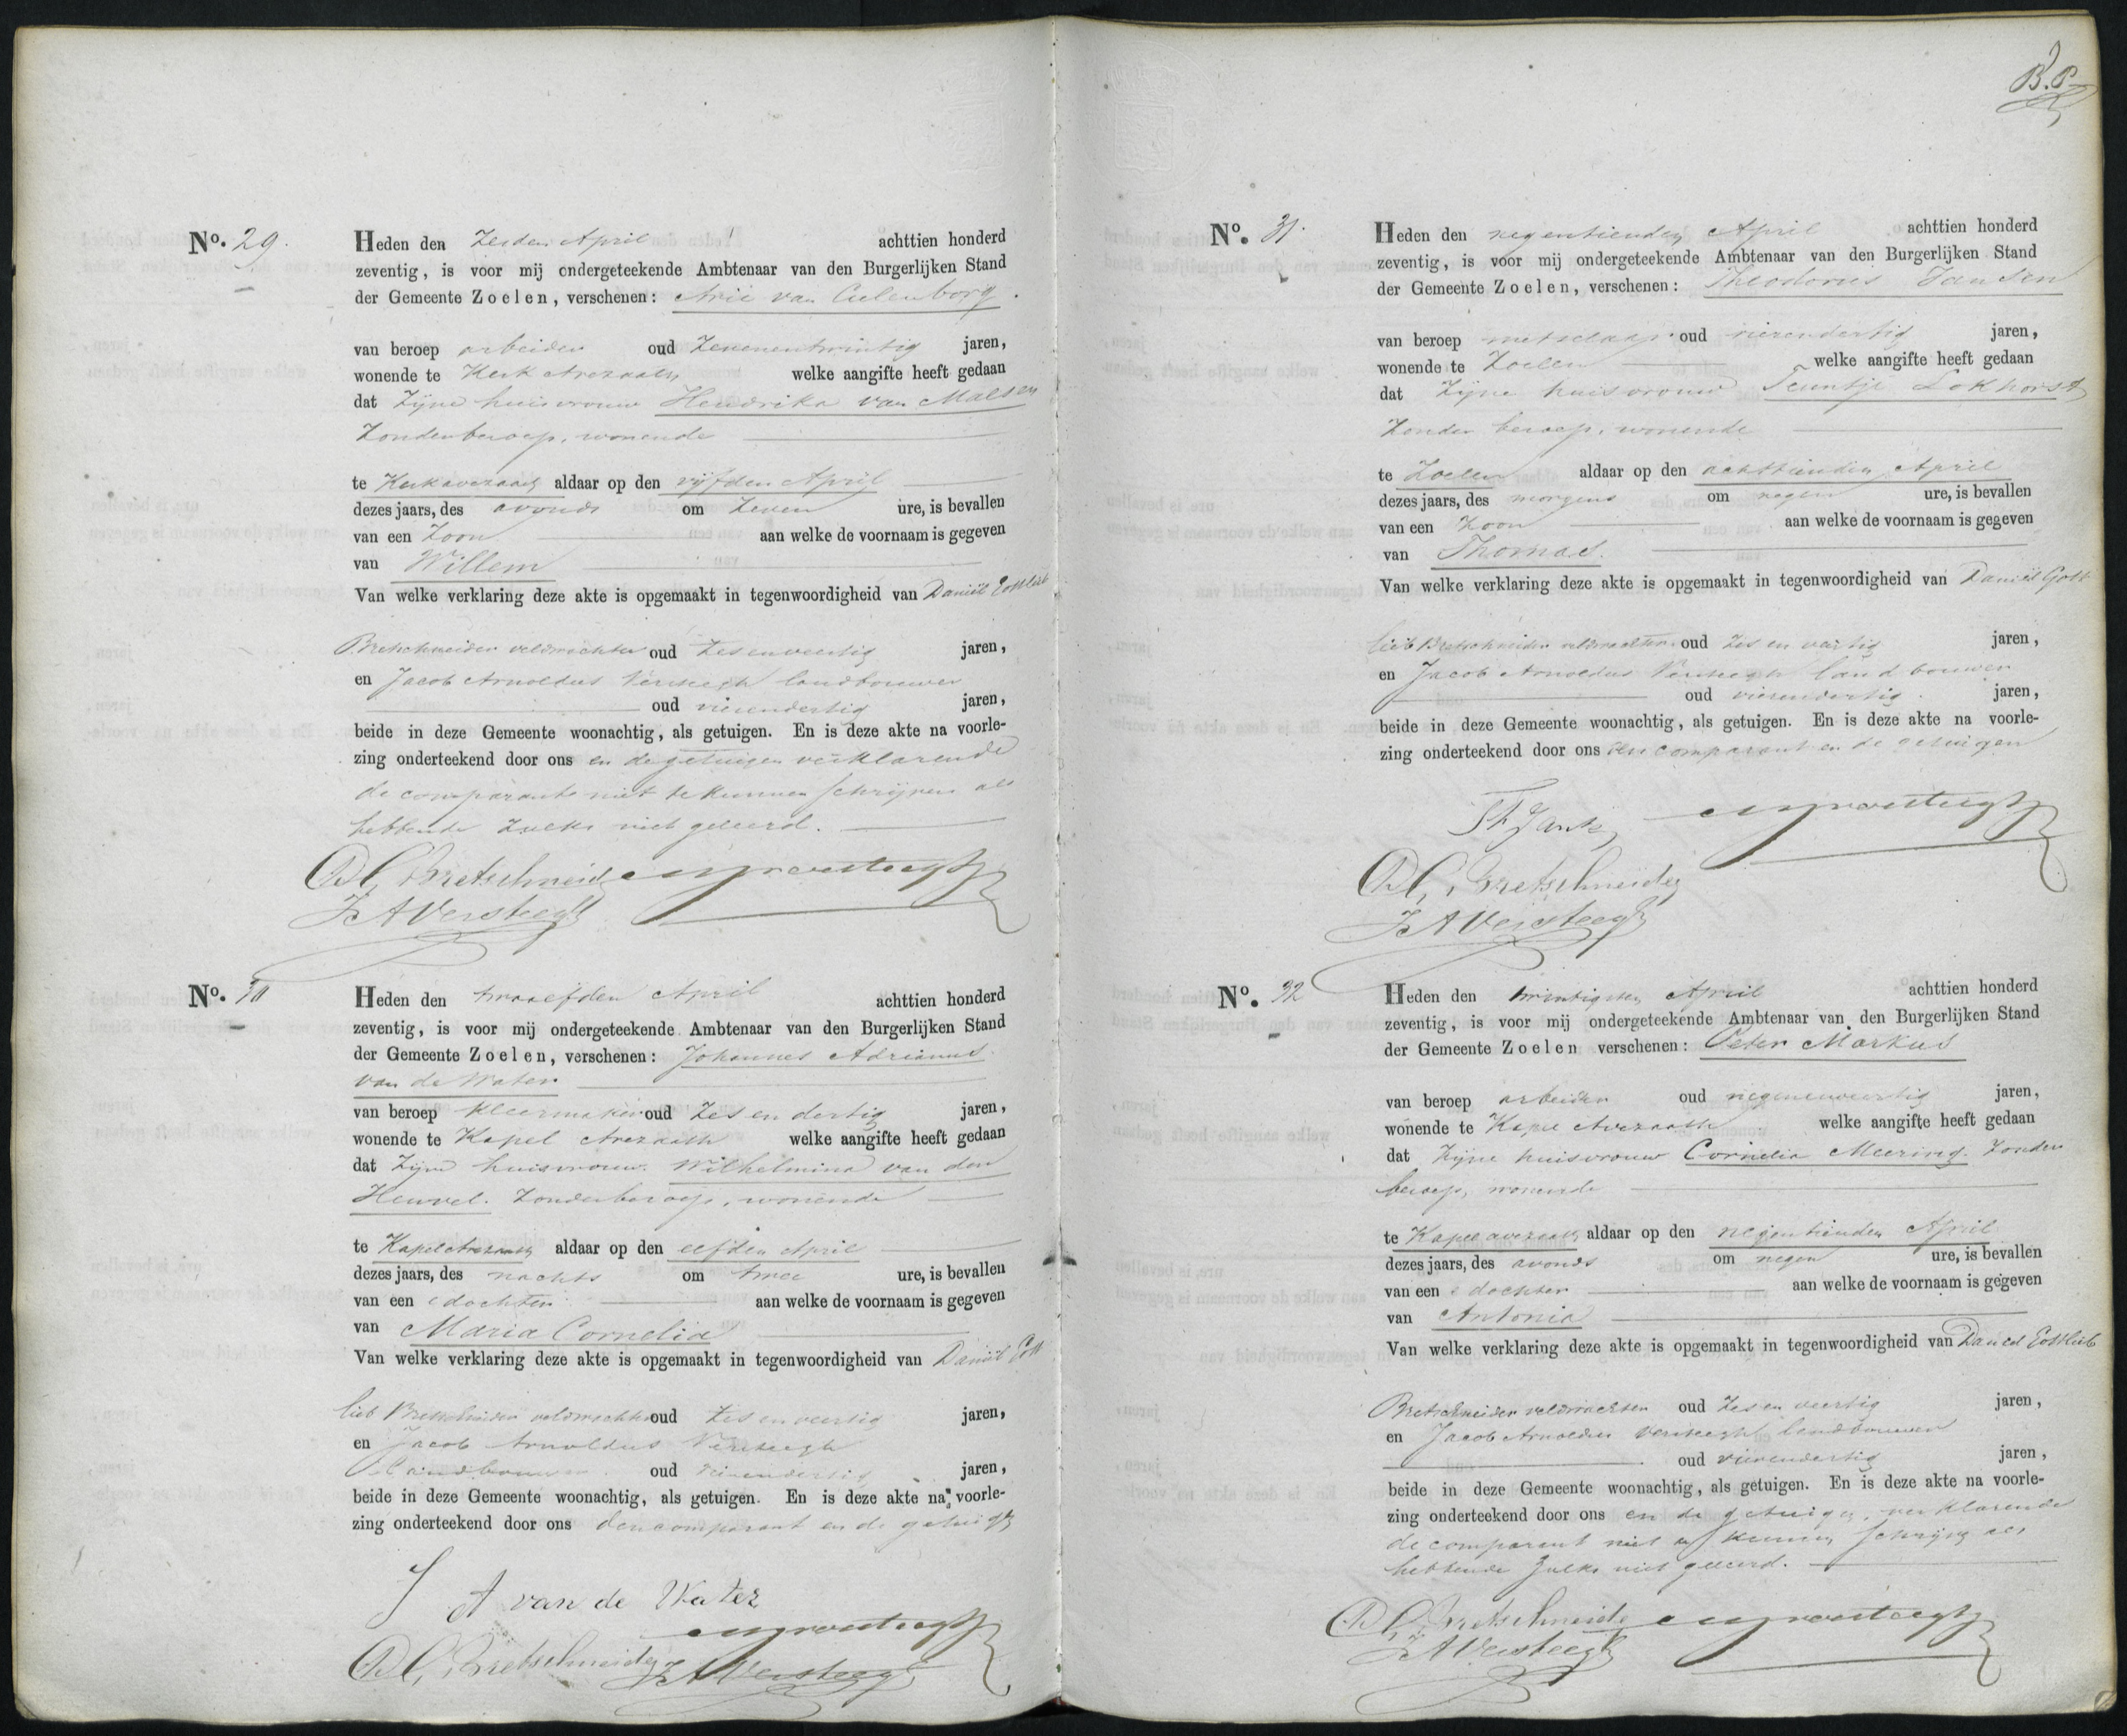 No. 29.
Heden den Zesden April achttien honderd
zeventig, is voor mij ondergeteekende Ambtenaar van den Burgerlijken Stand
der Gemeente Zoelen, verschenen: Arie van Culenborg.
van beroep arbeider oud Zevenentwintig jaren,
wonende te Kerk Avezaath welke aangifte heeft gedaan
dat Zijne huisvrouw Hendrika van Malsen
Zonder beroep, wonende
te Kerkavezaath aldaar op den vijfden April
dezes jaars, des avonds om Zeven ure, is bevallen
van een Zoon aan welke de voornaam is gegeven
van Willem
Van welke verklaring deze akte is opgemaakt in tegenwoordigheid van Daniël Gottlieb
Bretschneider veldwachter oud Zes en veertig jaren,
en Jacob Arnoldus Versteegh landbouwer
oud vierendertig jaren,
beide in deze Gemeente woonachtig, als getuigen. En is deze akte na voorle-
zing onderteekend door ons en de getuigen verklarende
de comparante niet te kunnen schrijven als
hebbende zulks niet geleerd.
DG Bretschneider
JA Versteegh
No. 30
Heden den twaalfden April achttien honderd
zeventig, is voor mij ondergeteekende Ambtenaar van den Burgerlijken Stand
der Gemeente Zoelen, verschenen: Johannes Adrianus
van de Water
van beroep Kleermaker oud Zes en dertig jaren,
wonende te Kapel Avezaath welke aangifte heeft gedaan
dat Zijne huisvrouw Wilhelmina van den
Heuvel. Zonder beroep, wonende
te Kapel Avezaath aldaar op den elfden April
dezes jaars, des nachts om twee ure, is bevallen
van een e dochter aan welke de voornaam is gegeven
van Maria Cornelia
Van welke verklaring deze akte is opgemaakt in tegenwoordigheid van Daniël Gott
lieb Bretschneider veldwachter oud Zes en veertig jaren,
en Jacob Arnoldus Versteegh
Landbouwer oud vierendertig jaren,
beide in deze Gemeente woonachtig, als getuigen. En is deze akte na voorle-
zing onderteekend door ons den comparant en de getuigen
J A van de Water
DG Bretschneider JA Versteegh
B.P.
No. 31.
Heden den negentienden April achttien honderd
zeventig, is voor mij ondergeteekende Ambtenaar van den Burgerlijken Stand
der Gemeente Zoelen, verschenen: Theodorus Jansen
van beroep metselaar oud vierendertig jaren,
wonende te Zoelen welke aangifte heeft gedaan
dat Zijne huisvrouw Teuntje Lokhorst
Zonder beroep, wonende
te Zoelen aldaar op den achttienden April
dezes jaars, des morgens om negen ure, is bevallen
van een Zoon aan welke de voornaam is gegeven
van Thomas.
Van welke verklaring deze akte is opgemaakt in tegenwoordigheid van Daniël Gott
lieb Bretschneider veldwachter oud Zes en veertig jaren,
en Jacob Arnoldus Versteegh landbouwer
oud vierendertig jaren,
beide in deze Gemeente woonachtig, als getuigen. En is deze akte na voorle-
zing onderteekend door ons den comparant en de getuigen
DG Bretschneider
JA Versteegh
No. 32
Heden den twintigsten April achttien honderd
zeventig, is voor mij ondergeteekende Ambtenaar van den Burgerlijken Stand
der Gemeente Zoelen verschenen: Peter Markus
van beroep arbeider oud negenenveertig jaren,
wonende te Kapel Avezaath welke aangifte heeft gedaan
dat Zijne huisvrouw Cornelia Meering. Zonder
beroep, wonende
te Kapel avezaath aldaar op den negentienden April
dezes jaars, des avonds om negen ure, is bevallen
van een e dochter aan welke de voornaam is gegeven
van Antonia
Van welke verklaring deze akte is opgemaakt in tegenwoordigheid van Daniel Gottlieb
Bretschneider veldwachter oud Zes en veertig jaren,
en Jacob Arnoldus Versteegh landbouwer
oud vierendertig jaren,
beide in deze Gemeente woonachtig, als getuigen. En is deze akte na voorle-
zing onderteekend door ons en de getuigen, verklarende
de comparant niet te kunnen schrijven als
hebbende zulks niet geleerd.
DG Bretschneider
JA Versteegh